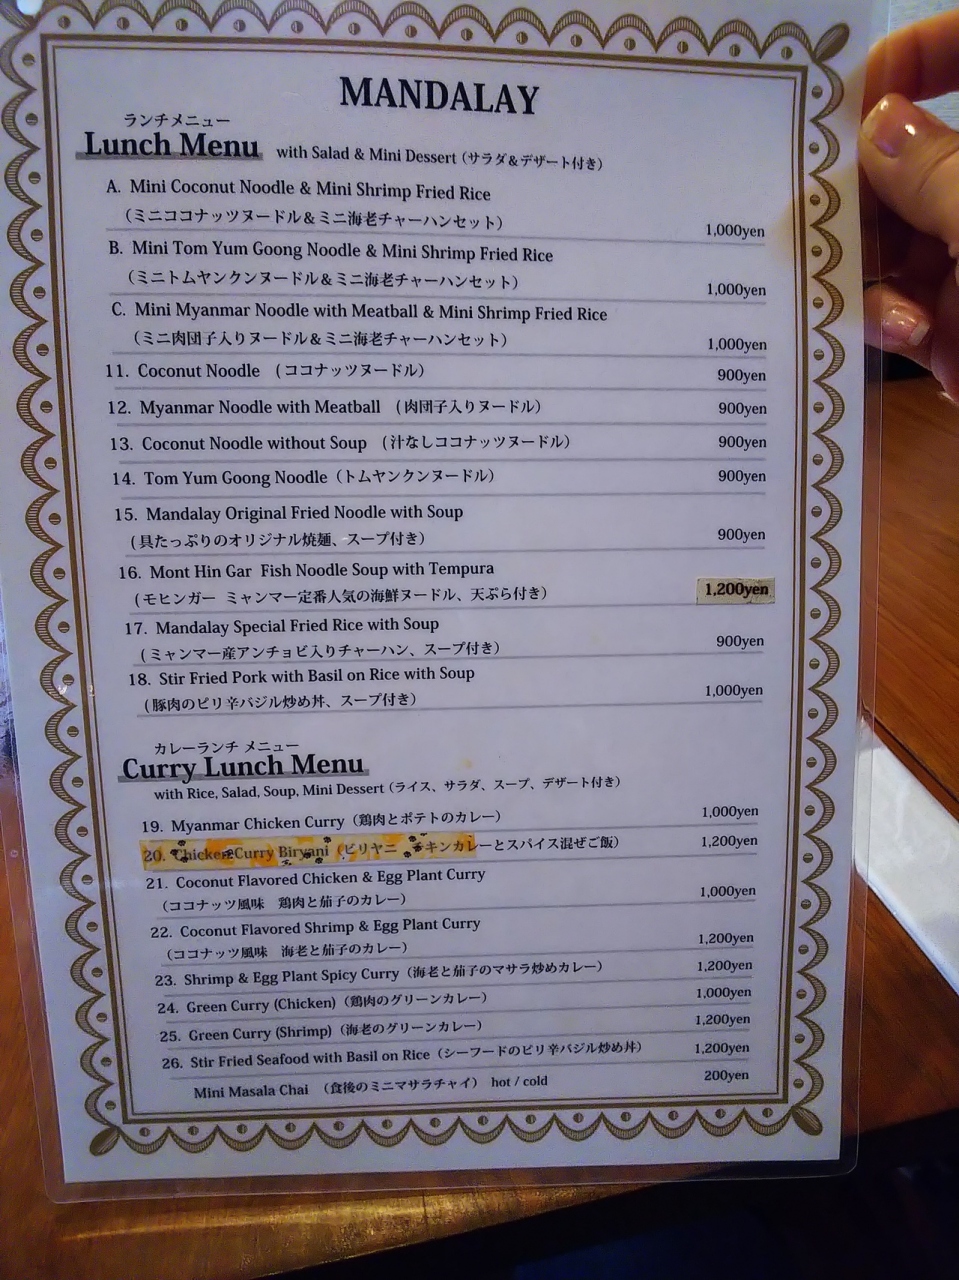 MANDALAY
ランチメニュー
Lunch Menu with Salad & Mini Dessert (サラダ&デザート付き)
A. Mini Coconut Noodle & Mini Shrimp Fried Rice
(ミニココナッツヌードル&ミニ海老チャーハンセット) 1,000yen
B. Mini Tom Yum Goong Noodle & Mini Shrimp Fried Rice
(ミニトムヤンクンヌードル&ミニ海老チャーハンセット) 1,000yen
C. Mini Myanmar Noodle with Meatball & Mini Shrimp Fried Rice
(ミニ肉団子入りヌードル&ミニ海老チャーハンセット) 1,000yen
11. Coconut Noodle (ココナッツヌードル) 900yen
12. Myanmar Noodle with Meatball (肉団子入りヌードル) 900yen
13. Coconut Noodle without Soup (汁なしココナッツヌードル) 900yen
14. Tom Yum Goong Noodle (トムヤンクンヌードル) 900yen
15. Mandalay Original Fried Noodle with Soup
(具たっぷりのオリジナル焼麺、スープ付き) 900yen
16. Mont Hin Gar Fish Noodle Soup with Tempura
(モヒンガー ミャンマー定番人気の海鮮ヌードル、天ぷら付き) 1,200yen
17. Mandalay Special Fried Rice with Soup
(ミャンマー産アンチョビ入りチャーハン、スープ付き) 900yen
18. Stir Fried Pork with Basil on Rice with Soup
(豚肉のピリ辛バジル炒め丼、スープ付き) 1,000yen
カレーランチ メニュー
Curry Lunch Menu
with Rice, Salad, Soup, Mini Dessert (ライス、サラダ、スープ、デザート付き)
19. Myanmar Chicken Curry (鶏肉とポテトのカレー) 1,000yen
20. Chicken Curry Biryani (ビリヤニ チキンカレーとスパイス混ぜご飯) 1,200yen
21. Coconut Flavored Chicken & Egg Plant Curry
(ココナッツ風味 鶏肉と茄子のカレー) 1,000yen
22. Coconut Flavored Shrimp & Egg Plant Curry
(ココナッツ風味 海老と茄子のカレー) 1,200yen
23. Shrimp & Egg Plant Spicy Curry (海老と茄子のマサラ炒めカレー) 1,200yen
24. Green Curry (Chicken) (鶏肉のグリーンカレー) 1,000yen
25. Green Curry (Shrimp) (海老のグリーンカレー) 1,200yen
26. Stir Fried Seafood with Basil on Rice (シーフードのピリ辛バジル炒め丼) 1,200yen
Mini Masala Chai (食後のミニマサラチャイ) hot / cold 200yen